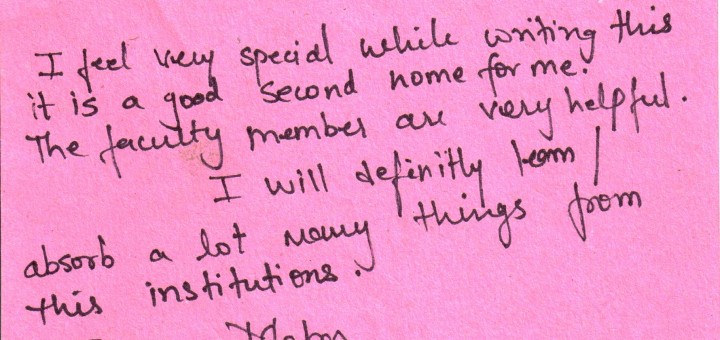 I feel very special while writing this
it is a good second home for me.
The faculty member are very helpful.
I will definitly learn /
absorb a lot many things from
this institutions.